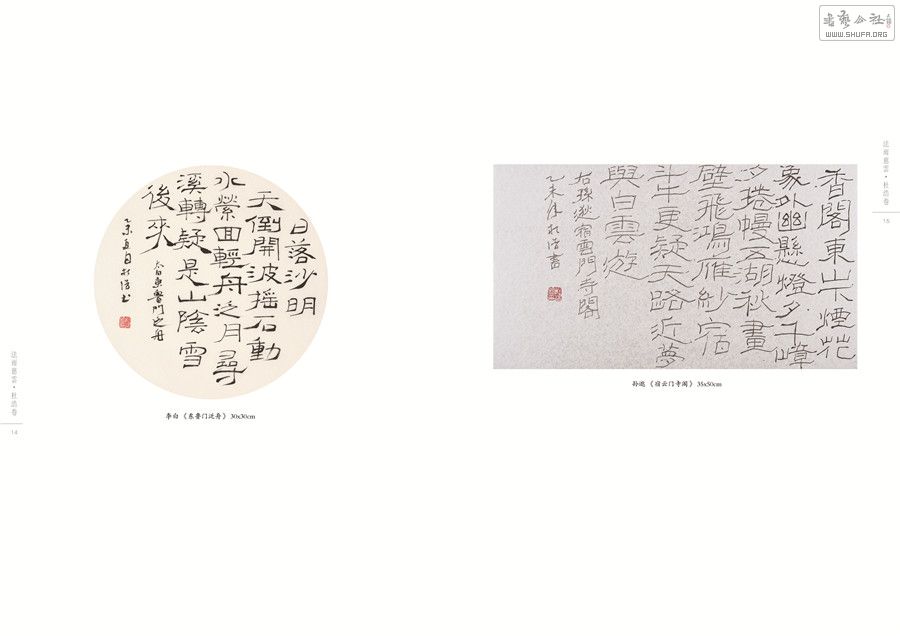 書藝公社
WWW.SHUFA.ORG
日落沙明
天倒開波搖石動
水縈回輕舟泛月尋
溪轉疑是山陰雪
後來
東魯門泛舟
李白 《东鲁门泛舟》 30x30cm
法雨慈雲·杜浩卷
14
香閣東山下煙花
象外幽懸燈夕千嶂
夕捲幔五湖秋畫
壁飛鴻雁紗宿
斗牛更疑天路近夢
與白雲遊
右孫逖宿雲門寺閣
乙未 杜浩書
孙逖 《宿云门寺阁》 35x50cm
法雨慈雲·杜浩卷
15